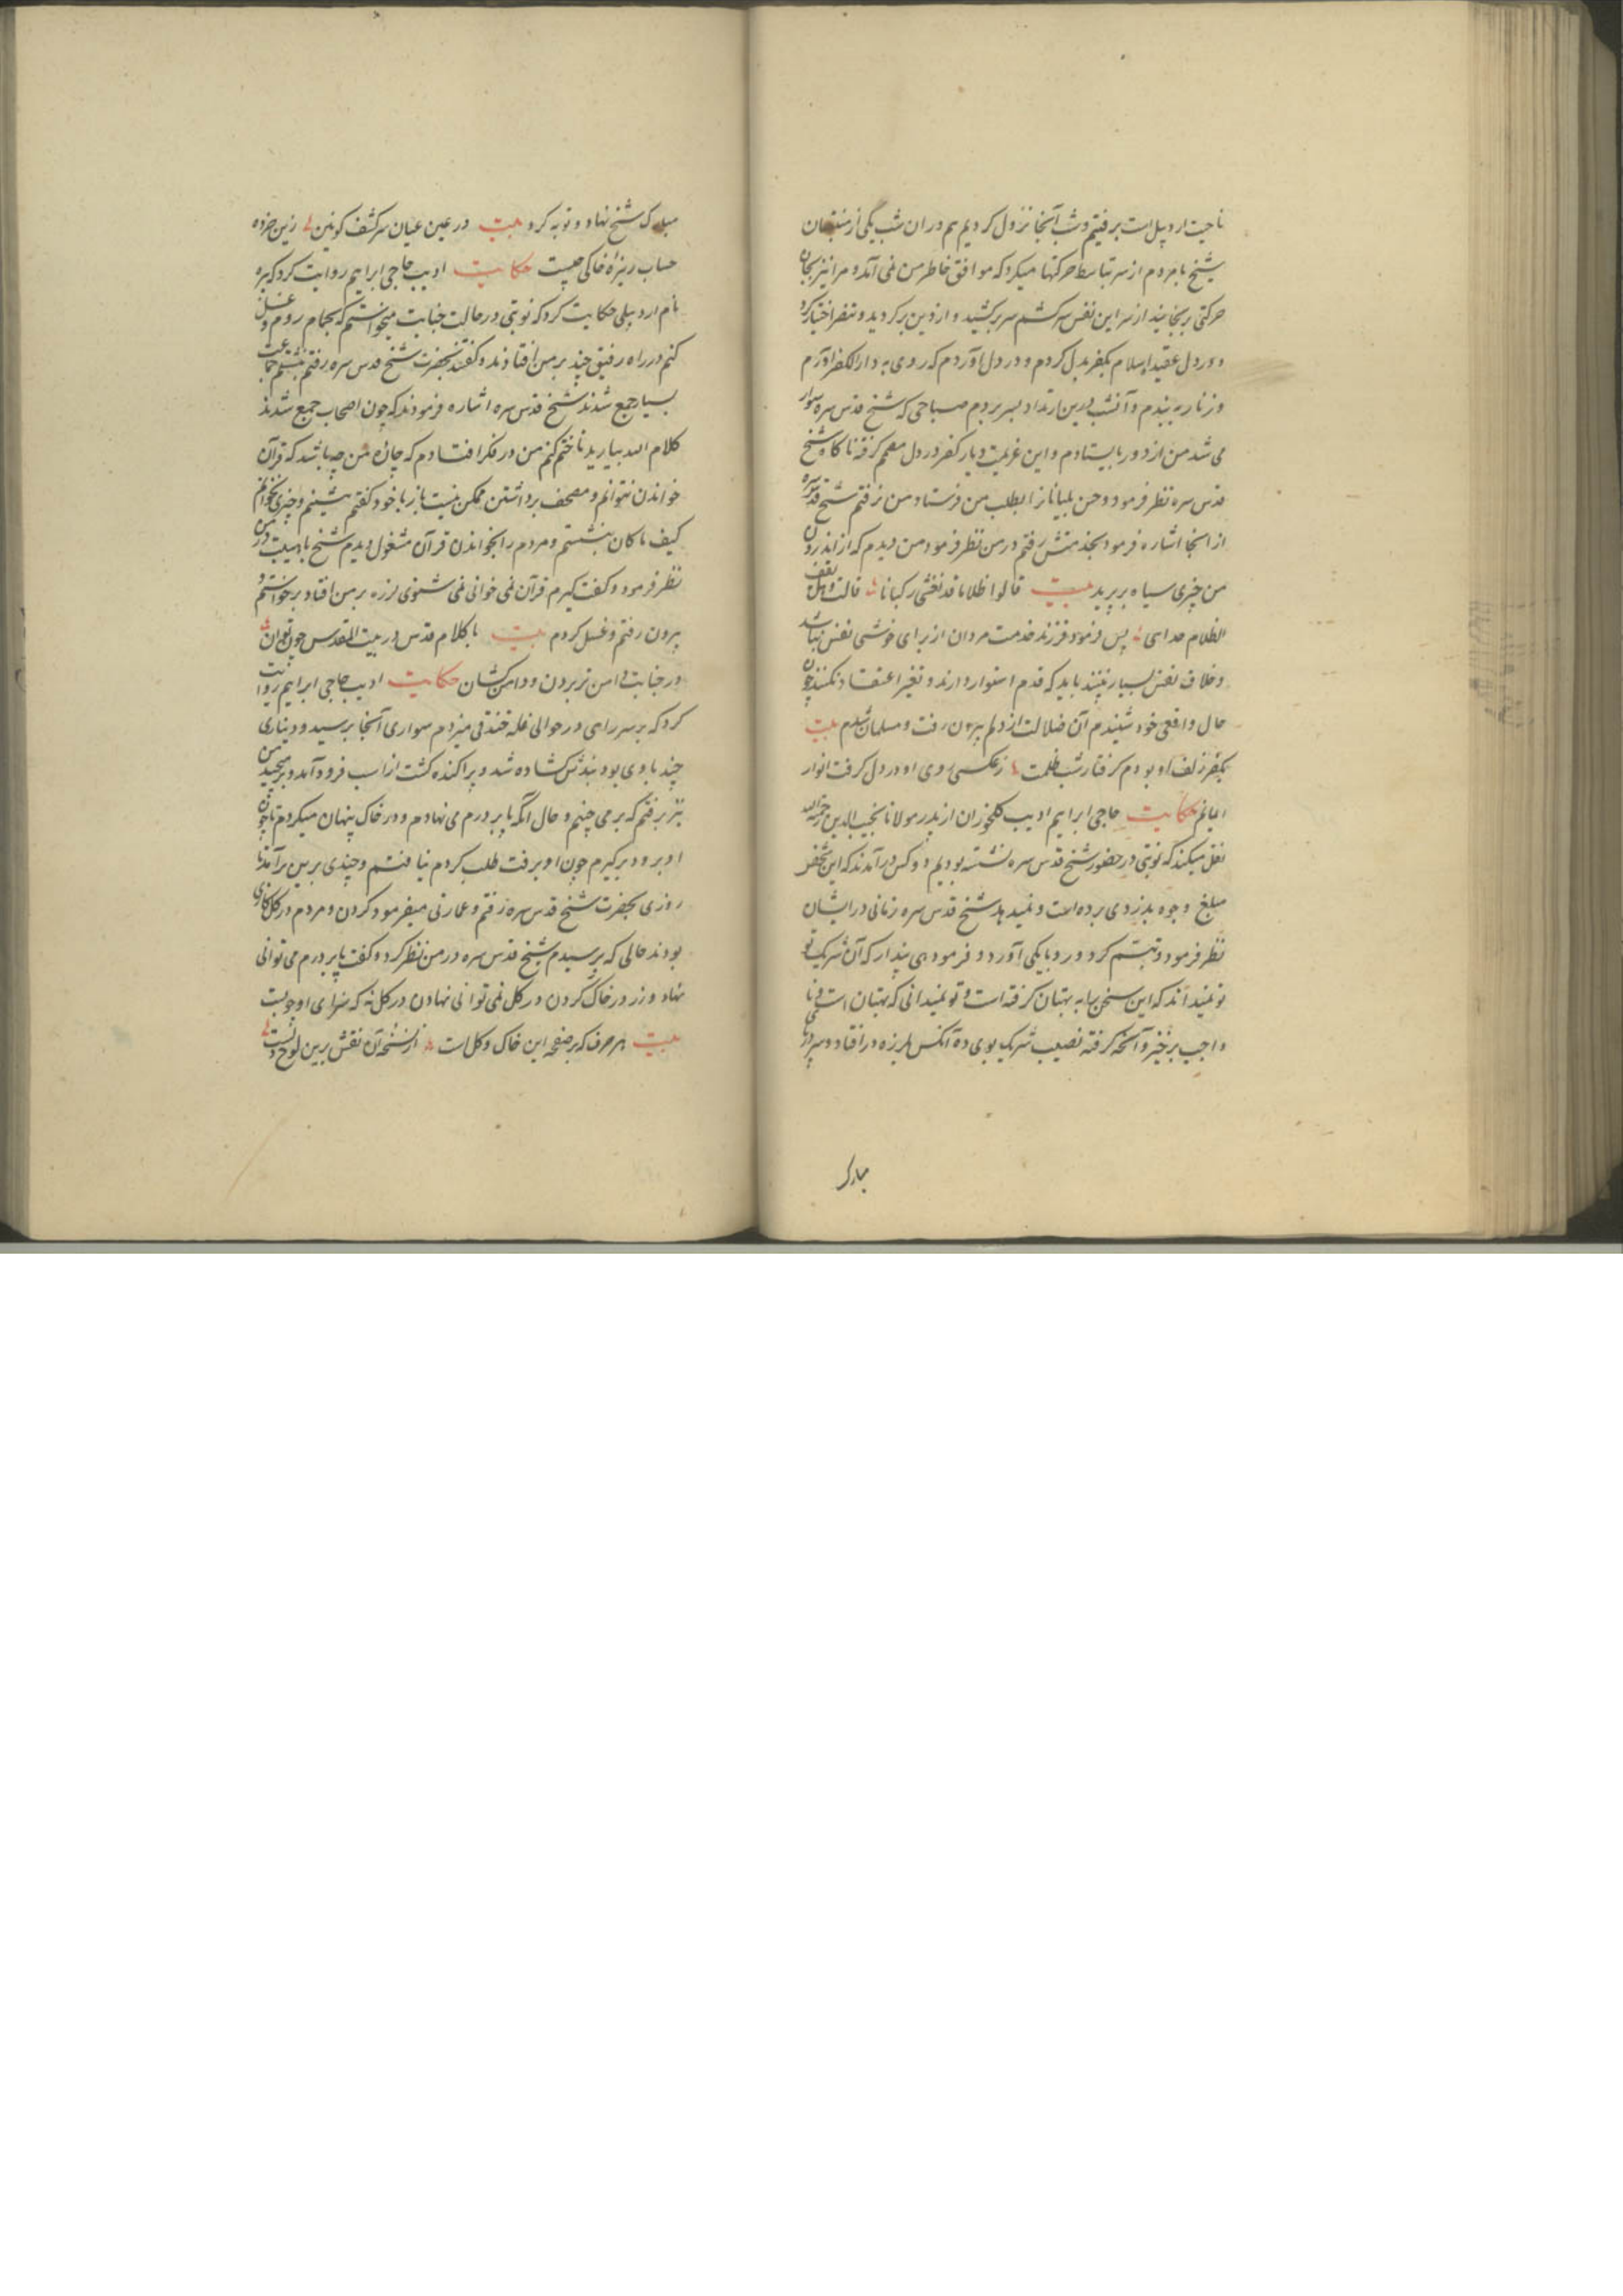 ناحیت اردبیل است برفتیم و شب آنجا نزول کردیم هم در ان شب یکی از منتبهان
شیخ با مردم از سر تباسط حرکتها میکرد که موافق خاطر من نمی آمد و مرا نیز بجان
حرکتی برنجانید از سر این نفس سرکشم سر برکشید و از دین برکردید و تنفر اختیار کرد
و در دل عقیده اسلام بکفر بدل کردم و در دل آوردم که روی به دار الکفر آورم
و زنار بربندم و آنشب درین ارتداد بسر بردم صباحی که شیخ قدس سره سوار
می شد من از دور بایستادم و این عزیمت دیار کفر در دل مصمم کرفته ناکاه شیخ
قدس سره نظر فرمود و حسن بلیانان را بطلب من فرستاد من نرفتم شیخ قدس سره
از انجا اشاره فرمود بخدمتش رفتم در من نظر فرمود من دیدم که از اندرون
من چیزی سیاه برپرید بیت قالوا ظلاما قد تغشی رکبانا قالت وهل یقف
الظلام هدای پس فرمود فرزند خدمت مردان از برای خوشی نفس نباشد
و خلاف نفس بسیار بینند باید که قدم استوار دارند و تغیر اعتقاد نکنند چون
حال واقعی خود شنیدم آن ضلالت از دلم بیرون رفت و مسلمان شدم بیت
بکفر زلف او بودم کرفتار شب ظلمت ز عکس روی او در دل کرفت انوار
ایمانم حکایت حاجی ابراهیم ادیب کلخوران از پدر مولانا نجیب الدین رحمه الله
نقل میکند که نوبتی در حضور شیخ قدس سره نشسته بودیم دو کس درآمدند که این شخص
مبلغ وجوه بدزدی برده است و نمیدهد شیخ قدس سره زمانی در ایشان
نظر فرمود و تبسم کرد و رو با یکی آورد و فرمود می پندار که آن شریک تو
نمیداند که این سخن به بهتان کرفته است و تو نمیدانی که بهتان است و نا
واجب برخیز و آنچه کرفته نصیب شریک بوی ده آنکس بلرزه در افتاد و سر در پای
مبارک
مبارک شیخ نهاد و توبه کرد بیت در عین عیان سر کشف کونین زین خرده
حساب ریزۀ خاکی چیست حکایت ادیب حاجی ابراهیم روایت کرد که پیره
نام اردبیلی حکایت کرد که نوبتی در حالت جنابت میخواستم که بحمام روم و غسل
کنم در راه رفیق چند بر من افتادند و کفتند بحضرت شیخ قدس سره رفتم بنشستم جماعت
بسیار جمع شدند شیخ قدس سره اشاره فرمودند که چون اصحاب جمع شدند
کلام الله بیارید تا ختم کنم من در فکر افتادم که چاره من چه باشد که قرآن
خواندن نتوانم و مصحف برداشتن ممکن نیست باز با خود کفتم بنشینم و چیزی نخوانم
کیف ما کان بنشستم و مردم را بخواندن قرآن مشغول دیدم شیخ با هیبت در من
نظر فرمود و کفت کیرم قرآن نمی خوانی نمی شنوی لرزه بر من افتاد برخواستم و
بیرون رفتم و غسل کردم بیت با کلام قدس در بیت المقدس چون توان
در جنابت دامن تر بردن و دامن کشان حکایت ادیب حاجی ابراهیم روایت
کرد که بر سر راهی در حوالی غله خندقی میزدم سواری آنجا برسید و دیناری
چند با وی بود بندش کشاده شد و پراکنده کشت از اسب فرود آمد و برمیچید من
نیز برفتم که برمی چینم و حال آنکه پا بر درم می نهادم و در خاک پنهان میکردم تا چون
او برود برکیرم چون او برفت طلب کردم نیافتم و چندی برین برآمد تا
روزی بحضرت شیخ قدس سره رفتم و عمارتی میفرمود کردن و مردم در کل کاری
بودند حالی که برسیدم شیخ قدس سره در من نظر کرد و کفت پا بر درم می توانی
نهاد و زر در خاک کردن در کل نمی توانی نهادن در کل نه که سزای او چوبست
بیت هر حرف که بر صفحه این خاک و کل است از نسخه آن نقش برین لوح دلست